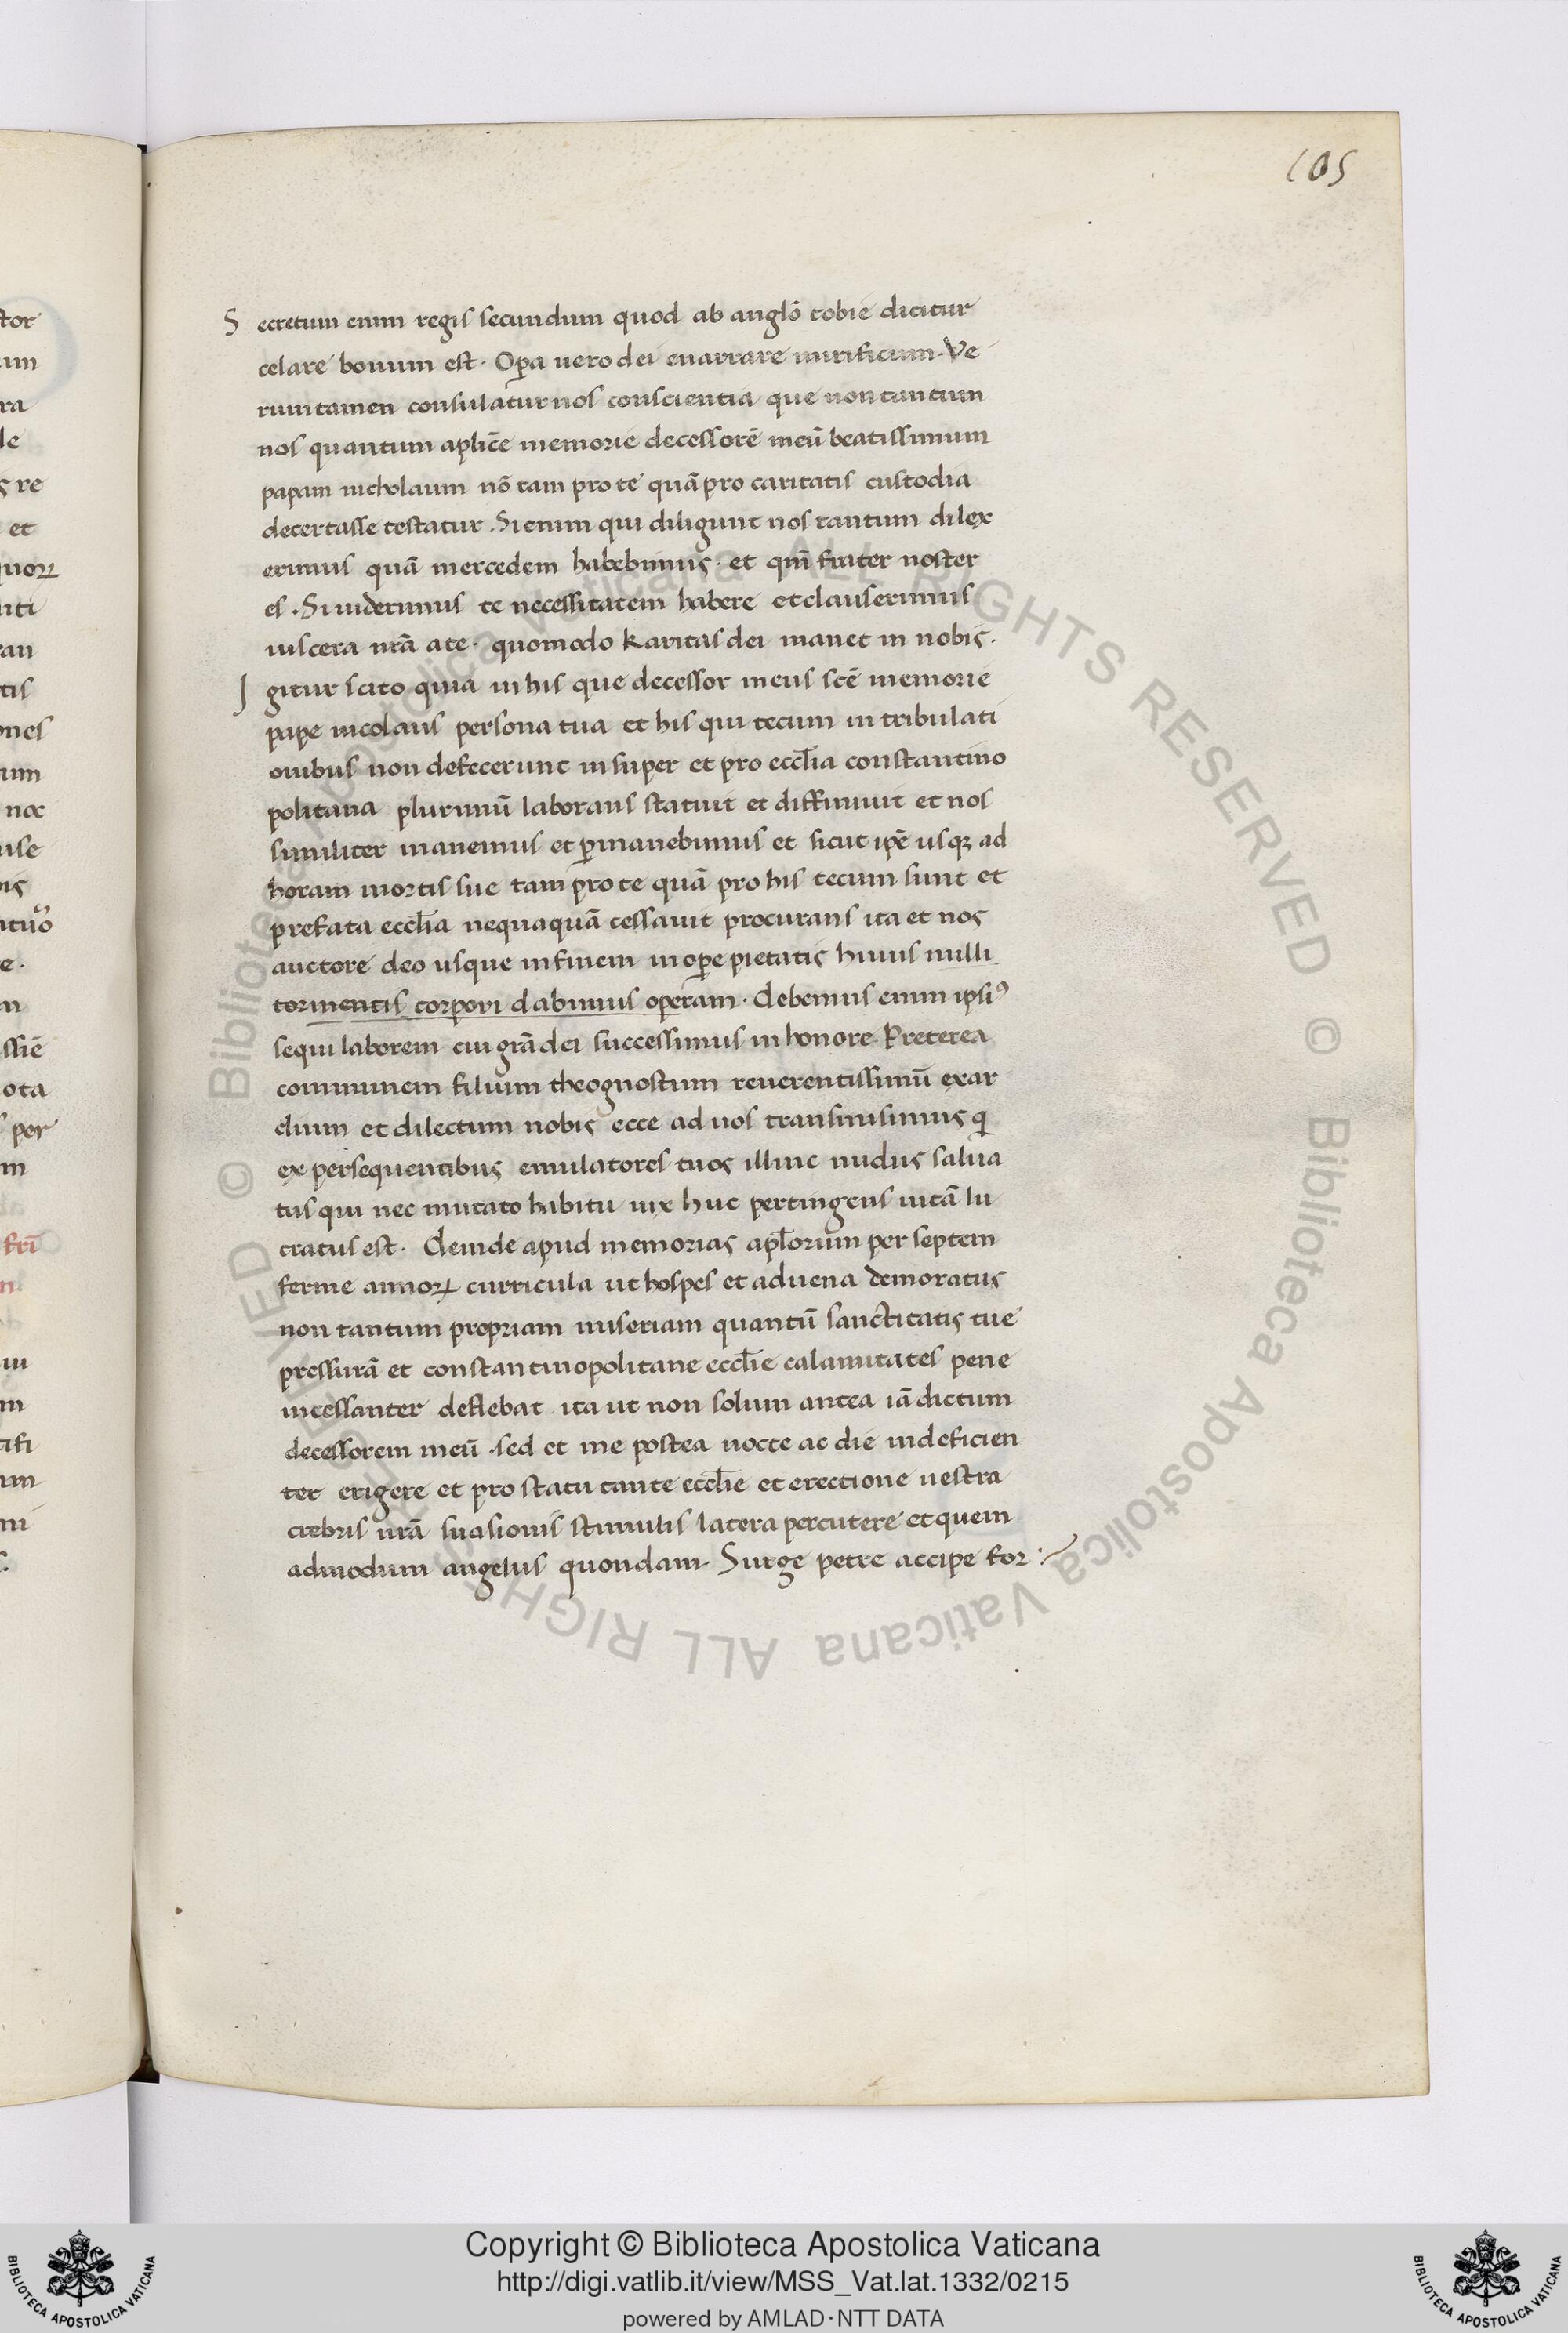 105
Secretum enim regis secundum quod ab anglō tobie dicitur
celare bonum est. Oꝑa uero dei enarrare mirificum. Ve
rum tamen consulatur nos conscientia que non tantum
nos quantum aplicē memorie decessorē meū beatissimum
papam nicholaum nō tam pro te quā pro caritatis custodia
decertasse testatur. Si enim qui diligunt nos tantum dilex
erimus quā mercedem habebimus. et qm̄ frater noster
es. Si uiderimus te necessitatem habere et clauserimus
uiscera nrā a te. quomodo karitas dei manet in nobis.
Igitur scito quia in his que decessor meus scē memorie
pape nicolaus persona tua et his qui tecum in tribulati
onibus non defecerunt insuper et pro eccl̄ia constantino
politana plurimū laborans statuit et diffinuit et nos
similiter manemus et ꝑmanebimus et sicut ipē usqꝫ ad
horam mortis sue tam pro te quā pro his tecum sunt et
prefata eccl̄ia nequaquā cessauit procurans ita et nos
auctore deo usque in finem in oꝑe pietatis huius nulli
tormentis corpori dabimus operam. debemus enim ipsiꝰ
sequi laborem cui grā dei successimus in honore. Preterea
communem filium theognostum reuerentissimū exar
chum et dilectum nobis ecce ad uos transmisimus q̄
ex persequentibus emulatores tuos illinc nudus salua
tus qui nec mutato habitu uix huc pertingens uitā lu
cratus est. Deinde apud memorias apl̄orum per septem
ferme annoꝝ curricula ut hospes et aduena demoratus
non tantum propriam miseriam quantū sanctitatis tue
pressurā et constantinopolitane eccl̄ie calamitates pene
incessanter deflebat ita ut non solum antea iā dictum
decessorem meū. sed et me postea nocte ac die indeficien
ter erigere et pro statu tante eccl̄ie et erectione uestra
crebris urā suasionis stimulis latera percutere et quem
admodum angelus quondam. Surge petre accipe for
Copyright © Biblioteca Apostolica Vaticana
http://digi.vatlib.it/view/MSS_Vat.lat.1332/0215
powered by AMLAD·NTT DATA